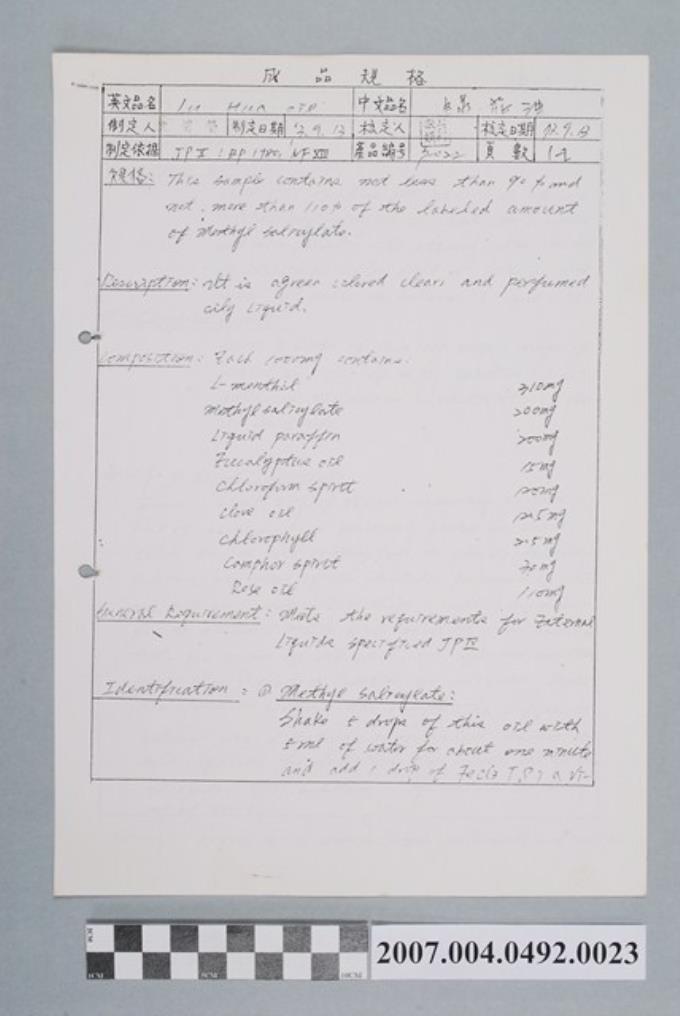 成品規格
英文品名 Lu Hua Oil 中文品名
制定人 制定日期 核定人 核定日期 72.9.13
制定依據 產品編號 頁數 1-2
規格: This sample contains not less than 90% and
not, more than 110% of the labeled amount
of Methyl Salicylate.
Description: It is agreen colored clear and perfumed
oily Liquid.
Composition: Each 1000mg contains:
L-menthol 310mg
Methyl salicylate 200mg
Liquid paraffin 200mg
Eucalyptus oil 15mg
Chloroform spirit 20mg
Clove oil
Chlorophyll 2.5mg
Comphor spirit 70mg
Rose oil 110mg
General Requirement: Mets the requirements for External
Liquids specified JP
Identification: ① Methyl Salicylate:
Shake 5 drops of this oil with
5ml of water for about one minute
and add 1 drop of T.S; a vi-
0CM 5CM 10CM
2007.004.0492.0023